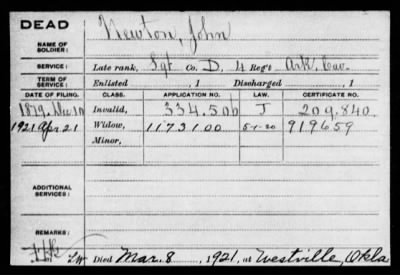 DEAD
NAME OF SOLDIER: Newton, John
SERVICE: Late rank, Sgt Co. D, 4 Reg't Ark. Cav.
TERM OF SERVICE: Enlisted , 1 Discharged , 1
DATE OF FILING. CLASS. APPLICATION NO. LAW. CERTIFICATE NO.
1879, Dec 10 Invalid, 334.500 J 209.840.
1921 Apr 21 Widow, 1173100 5-1-20 919659
Minor,
ADDITIONAL SERVICES:
REMARKS:
Died Mar. 8, 1921, at Westville, Okla